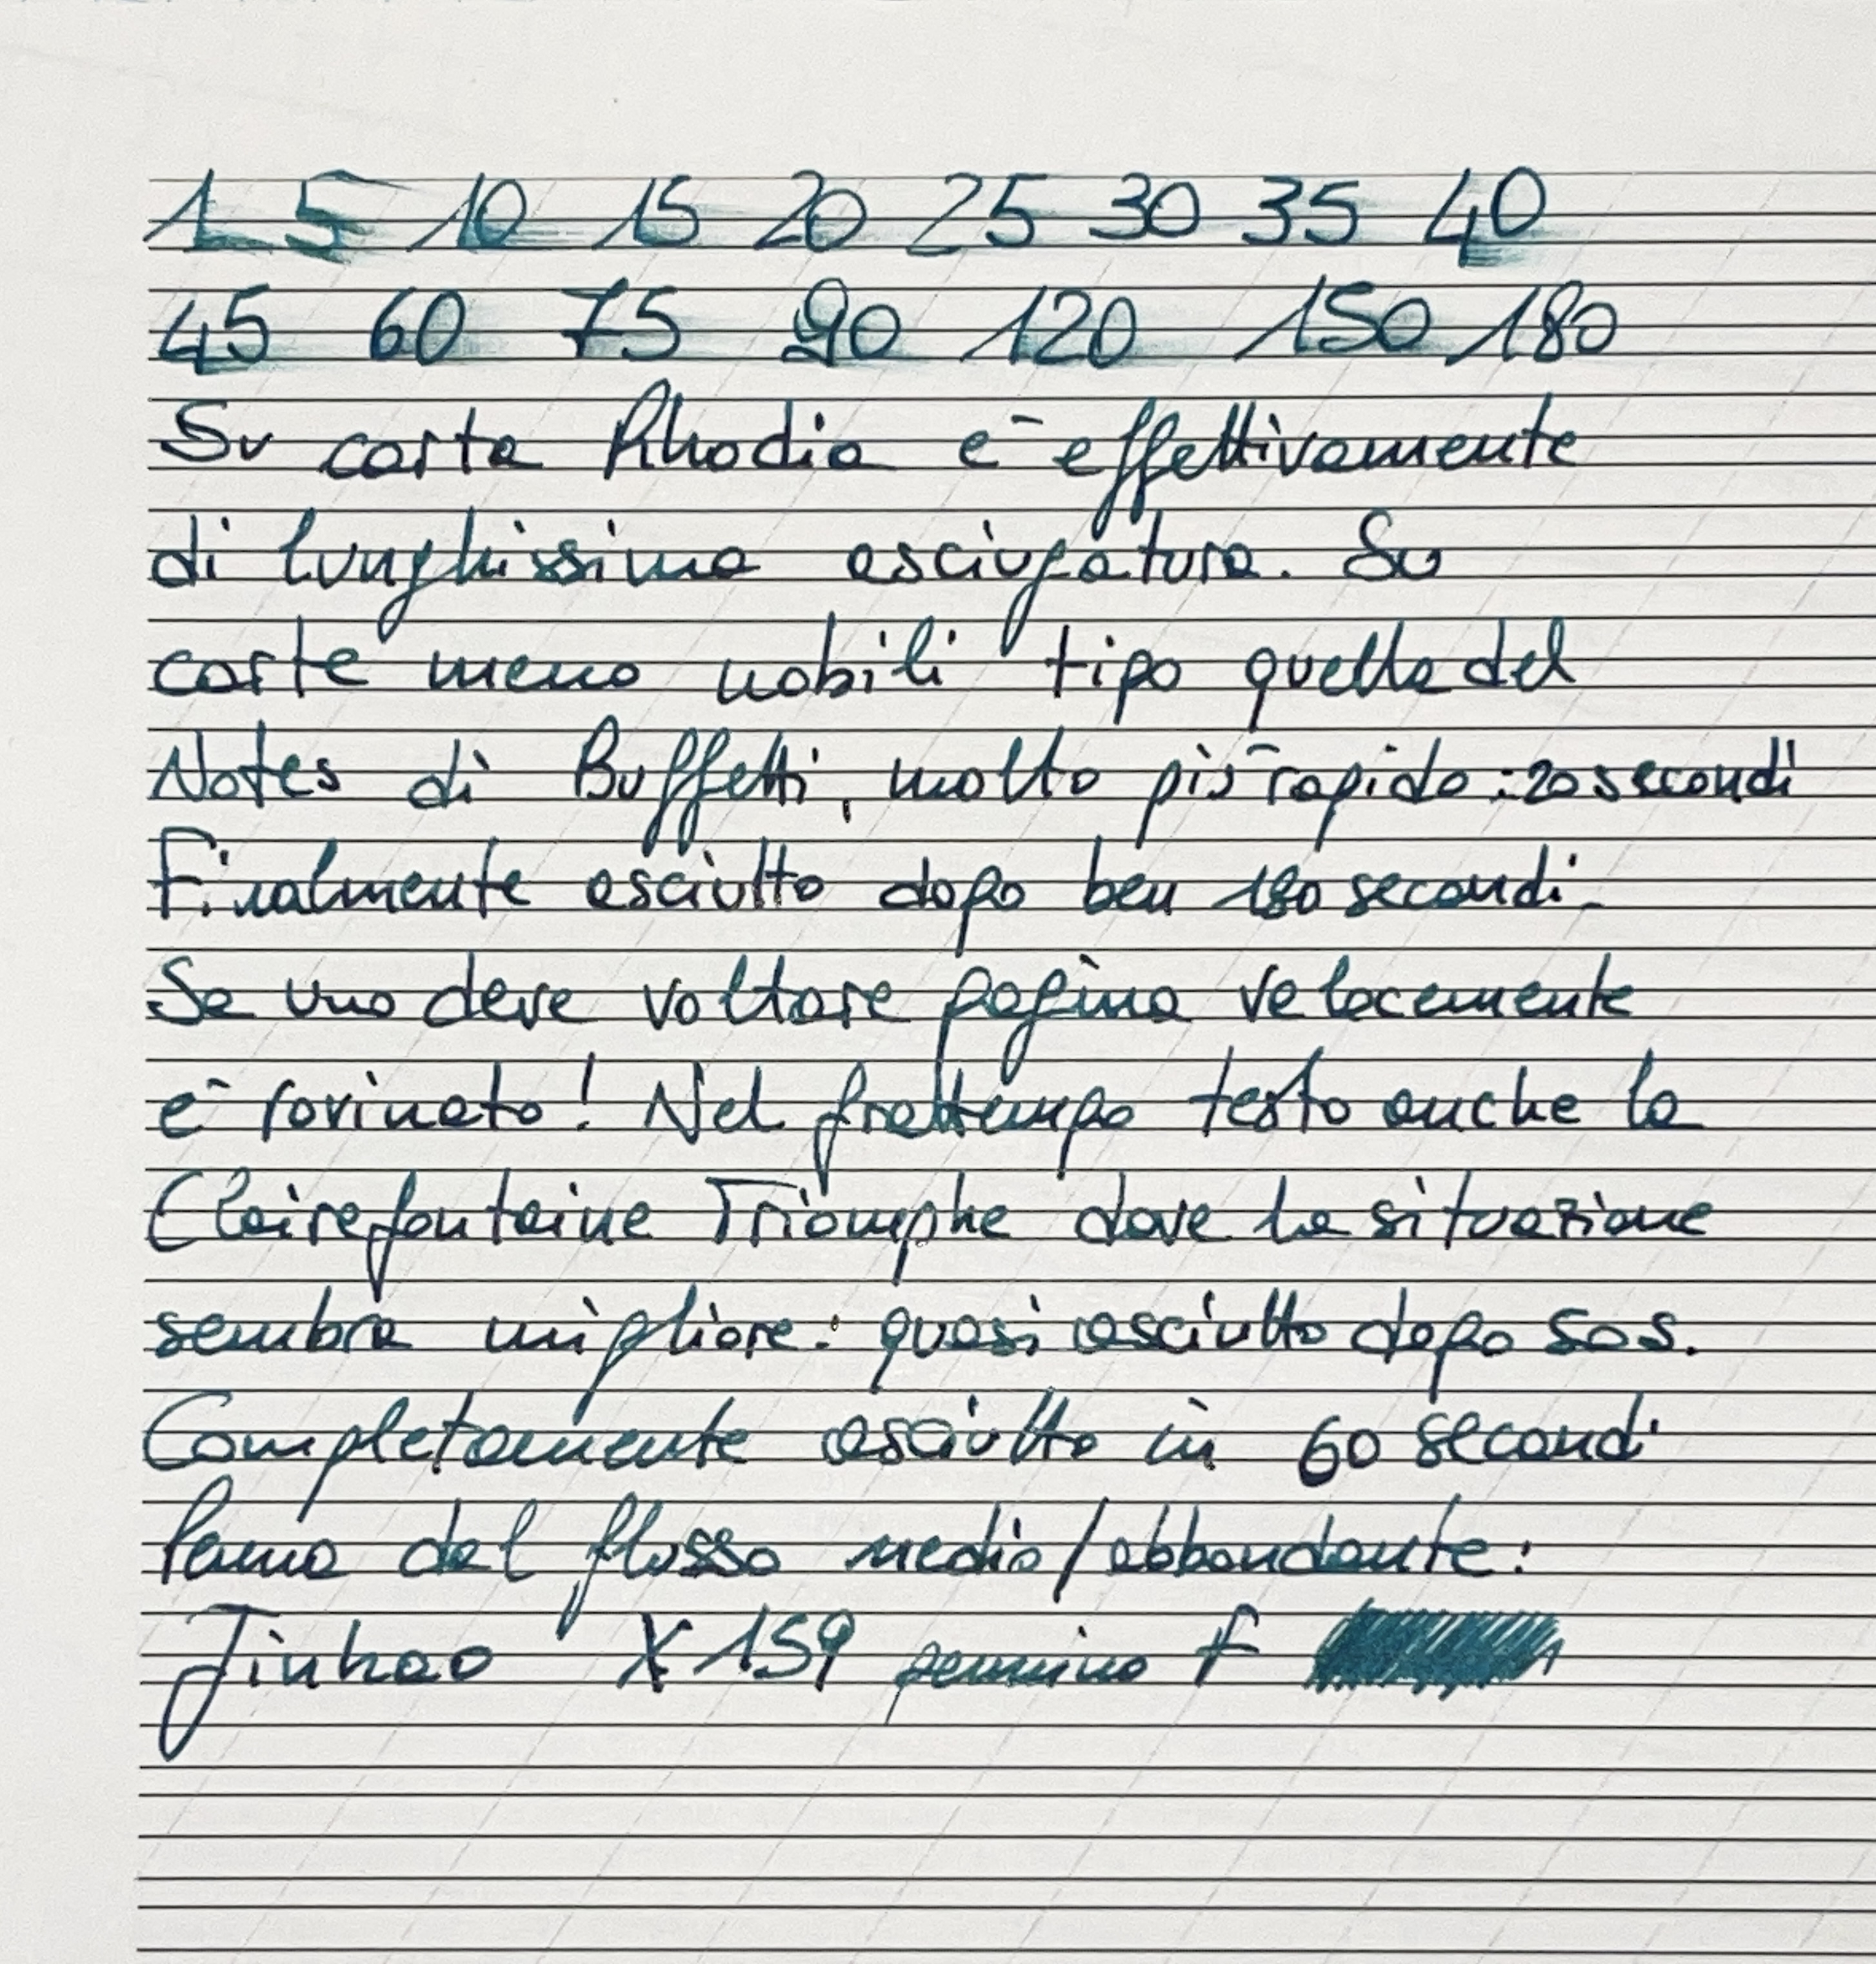 1 5 10 15 20 25 30 35 40
45 60 75 90 120 150 180
Su carta Rhodia è effettivamente
di lunghissima asciugatura. Su
carte meno nobili tipo quella del
Notes di Buffetti, molto più rapido: 20 secondi
Finalmente asciutto dopo ben 180 secondi.
Se uno deve voltare pagina velocemente
è rovinato! Nel frattempo testo anche la
Clairefontaine Triomphe dove la situazione
sembra migliore: quasi asciutto dopo 50s.
Completamente asciutto in 60 secondi
Penna dal flusso medio/abbondante:
Jinhao X159 pennino F